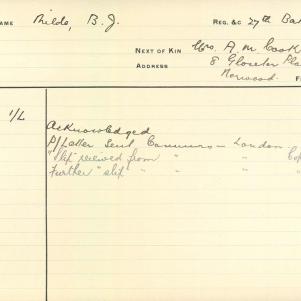 NAME Milde, B. J. REG. &C 27th Bat
NEXT OF KIN Mrs. A. M. Cook
ADDRESS 8 Gloucester Pla
Norwood.
1/L
Acknowledged
P/Letter Sent Communs – London
"slip" received from " " Cop
Further "slip" " " "